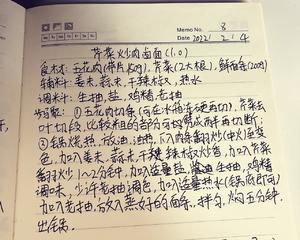 Memo No. 8
Date 2022 / 2 / 4
芹菜炒肉卤面(1.0)
食材: 五花肉(带片长的), 芹菜(2大根), 鲜面条(200g)
辅料: 姜末, 蒜末, 干辣椒, 热水
调料: 生抽, 盐, 鸡精, 老抽
步骤: ① 五花肉切条(可在水箱冻硬再切), 芹菜去
叶切段, 比较粗的部分可以劈成解再切断;
② 锅烧热, 放油, 油热, 入肉条翻炒(中火)至变
色, 加入姜末, 蒜末, 干辣椒炒香, 加入芹菜
翻炒1~2分钟, 加入适量盐, 生抽, 鸡精
调味, 少许老抽调色, 加入适量热水(锅底即可)
加入老抽, 放入蒸好的面条, 拌匀, 焖五分钟,
出锅.